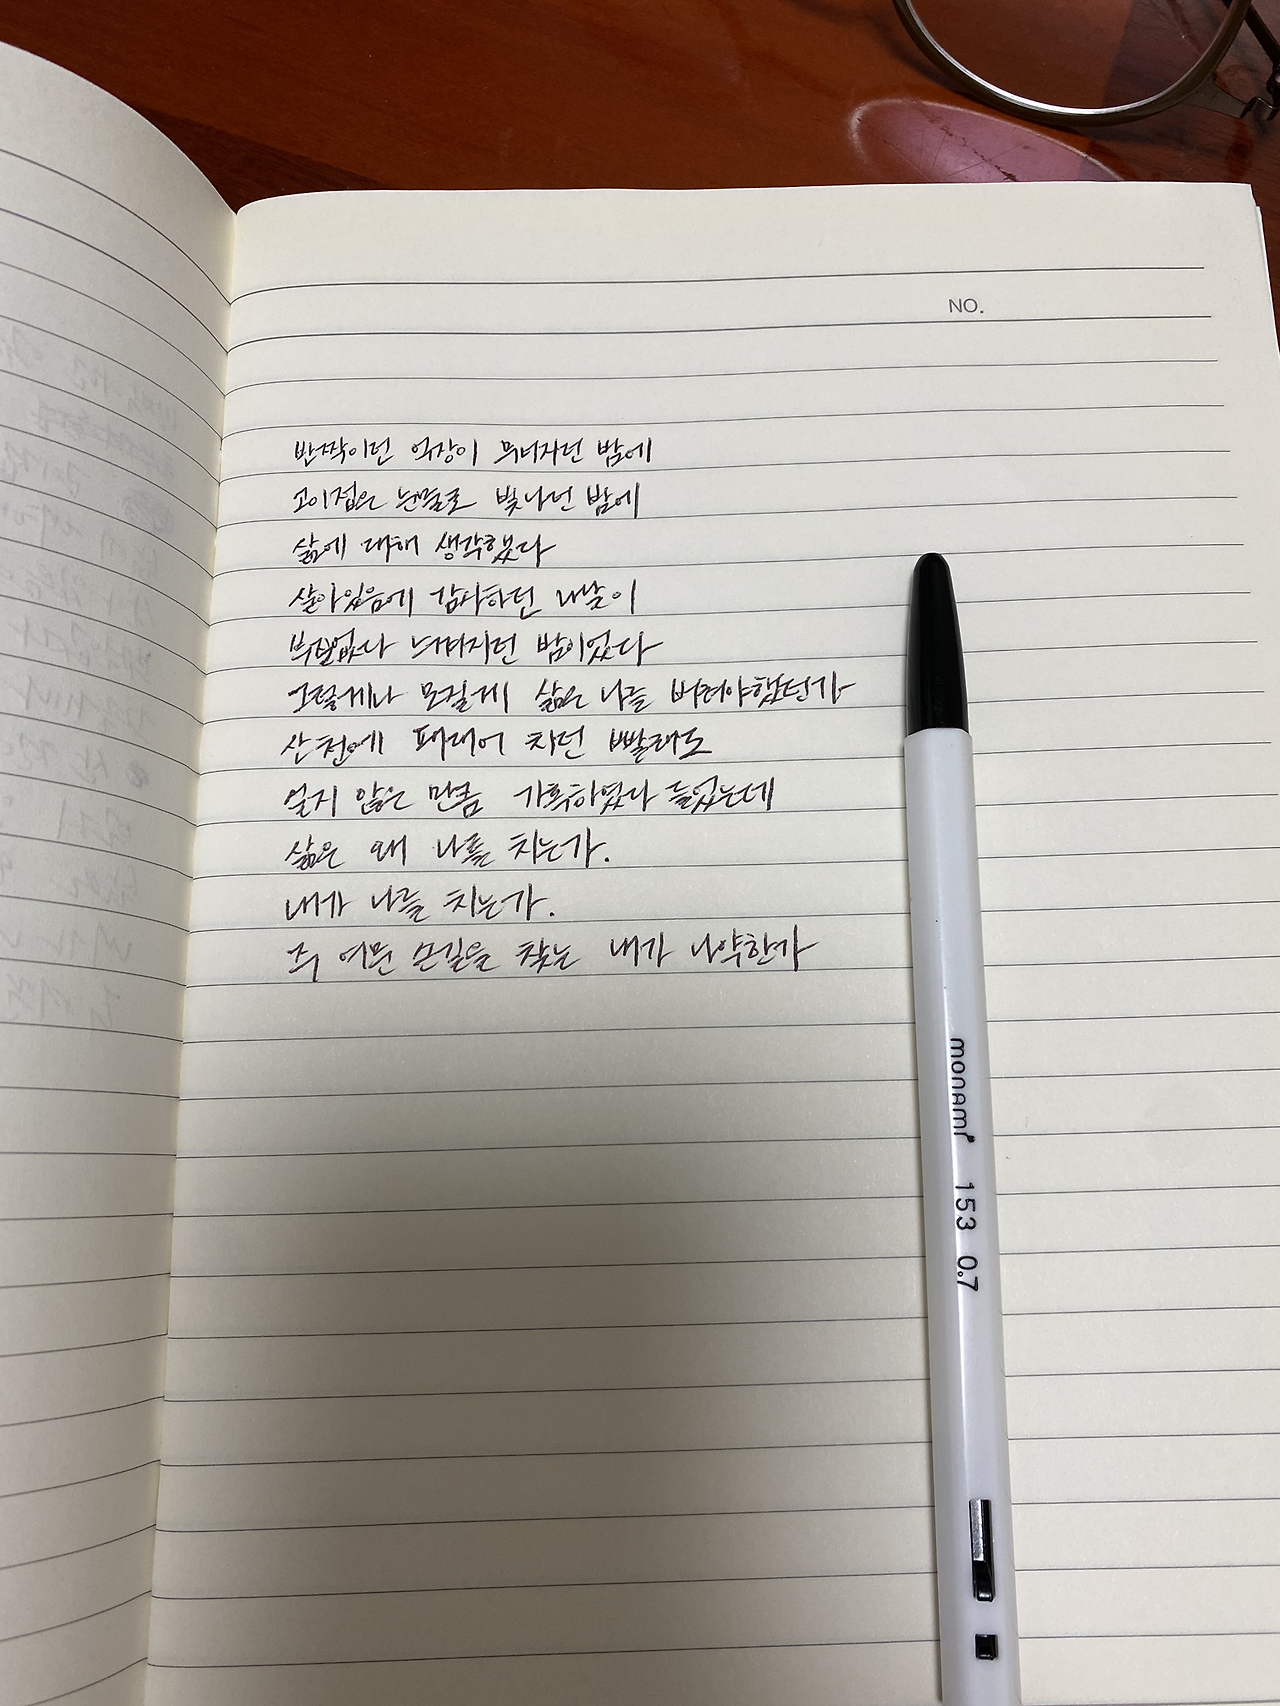 NO.
반짝이던 억장이 무너지던 밤에
고이접은 눈물로 빛나던 밤에
삶에 대해 생각했다
살아있음에 감사하던 나날이
부질없다 느껴지던 밤이었다
그렇게나 모질게 삶은 나를 버려야했던가
산천에 패대어 치던 빨래도
얼지 않은 만큼 가혹하였다 들었는데
삶은 왜 나를 치는가.
내가 나를 치는가.
죄 여문 손길을 찾는 내가 나약한가
monami 153 0.7